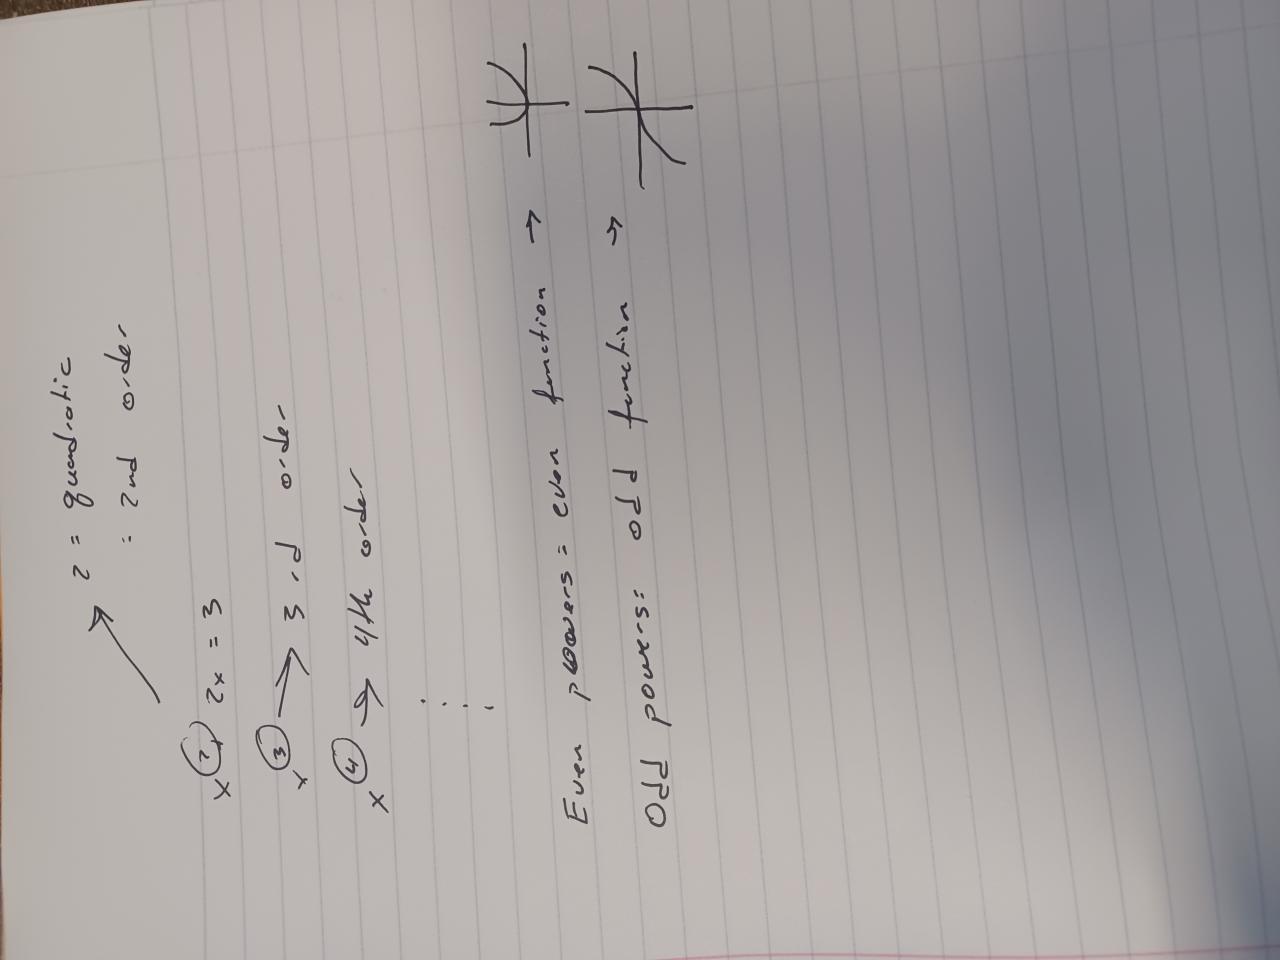 2 = quadratic
= 2nd order
x² + 2x = 3
x³ → 3rd order
x⁴ → 4th order
⋮
Even powers = even function →
Odd powers = odd function →